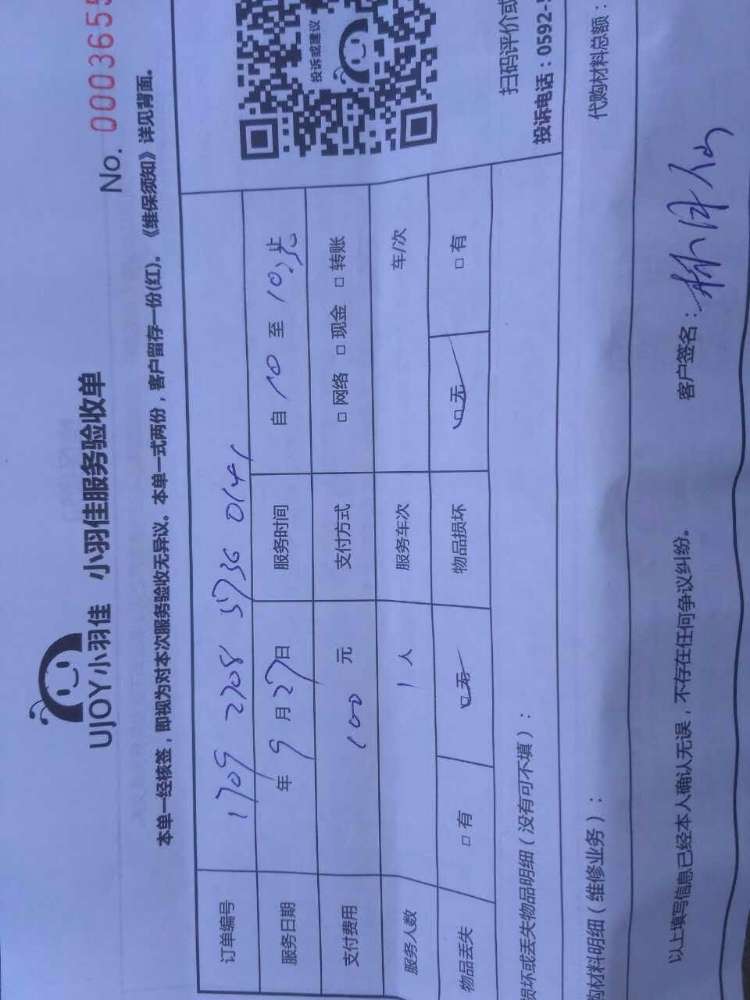 UJOY小羽佳 小羽佳服务验收单
No. 000365
本单一经核签，即视为对本次服务验收无异议。本单一式两份，客户留存一份(红)。《维保须知》详见背面。
订单编号 1709 2708 5736 0141
服务日期 年 9 月 27 日 服务时间 自 10 至 10:30 止
支付费用 100 元 支付方式 □ 网络 □ 现金 □ 转账
服务人数 1 人 服务车次 车/次
物品丢失 □ 有 □ 无 物品损坏 □ 无 □ 有
投诉或建议
扫码评价或
投诉电话：0592-
损坏或丢失物品明细（没有可不填）：
购材料明细（维修业务）： 代购材料总额：
以上填写信息已经本人确认无误，不存在任何争议纠纷。 客户签名：